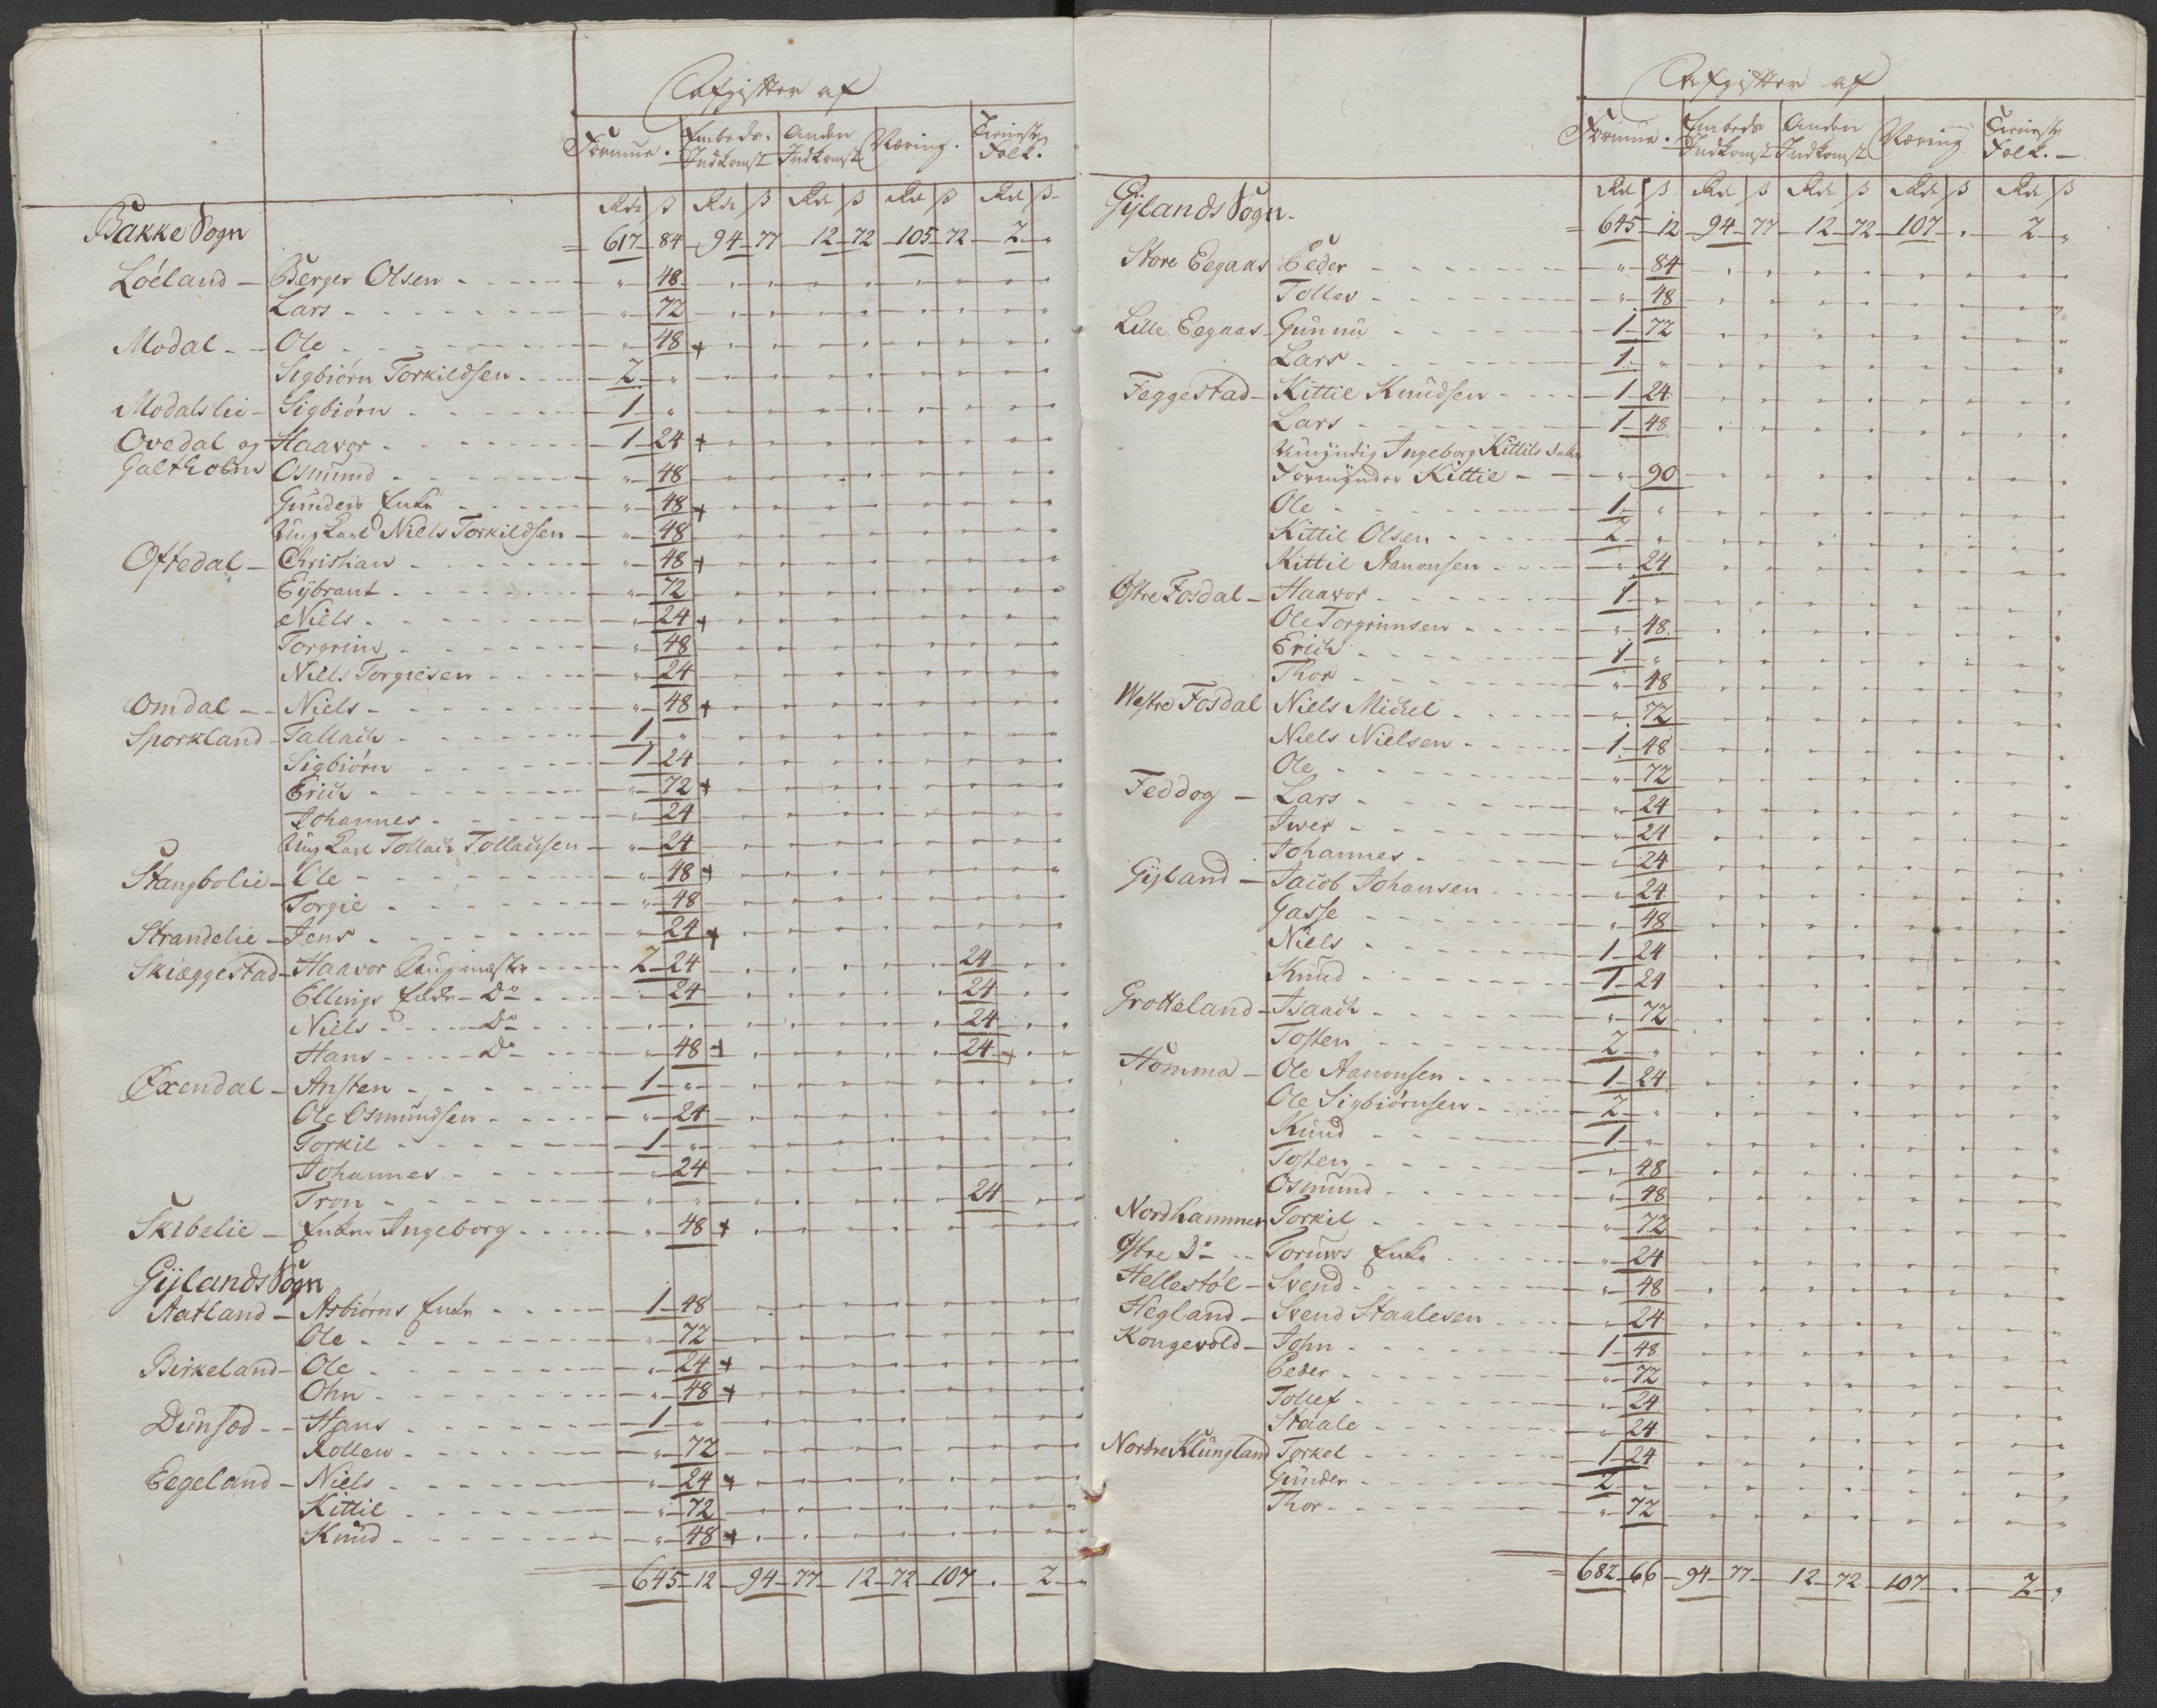 Afgifter af
Formue. Embeds Indkomst Anden Indkomst Næring. Tieniste Folk.
Rdr ß Rdr ß Rdr ß Rdr ß Rdr ß
Bakke Sogn = 617 84 94 77 12 72 105 72 2 "
Löeland - Berger Olsen " 48
Lars " 72
Modal - Ole " 48 +
Sigbiörn Torkildsen 2 "
Modalslie - Sigbiörn 1 "
Ovedal og Haavor 1 24 +
Galtholm Osmund " 48
Gunders Enke " 48 +
Ung Karl Niels Torkildsen " 48
Oftedal - Christian " 48 +
Eÿbrant " 72
Niels " 24 +
Torgrim " 48
Niels Torgiesen " 24
Omdal - Niels " 48 +
Sporkland - Tallach 1 "
Sigbiörn 1 24
Erich " 72 +
Johannes " 24
Ung Karl Tollach Tollachsen " 24
Stangbolie - Ole " 48 +
Torgie " 48
Strandelie - Jens " 24 +
Skiæggestad - Haavor Laugmester 2 24 24
Ellings Enke - Do " 24 24
Niels - Do " " 24
Hans - Do " 48 + 24 +
Øxendal - Ansten 1 "
Ole Osmundsen " 24
Torkil 1 "
Johannes " 24
Tron " " 24
Skibelie - Enken Ingeborg " 48 +
Gÿlands Sogn
Aatland - Asbiörns Enke 1 48
Ole " 72
Birkeland - Ole " 24 +
Ohn " 48 +
Dunsæd - Hans 1 "
Rollew " 72
Eegeland - Niels " 24 +
Kittil " 72
Knud " 48 +
= 645 12 94 77 12 72 107 " 2 "
Afgifter af
Formue. Embeds Indkomst Anden Indkomst Næring Tieniste Folk.
Rdr ß Rdr ß Rdr ß Rdr ß Rdr ß
Gÿlands Sogn. = 645 12 94 77 12 72 107 " 2 "
Store Eegaas Peder " 84
Tollev " 48
Lille Eegaas - Gunnu 1 72
Lars 1 "
Feggestad - Kittil Knudsen 1 24
Lars 1 48
Umÿndig Ingeborg Kittils
Formÿnder Kittil " 90
Ole 1 "
Kittil Olsen 2 "
Kittil Aanonsen " 24
Østre Fosdal - Haavor 1 "
Ole Torgrimsen " 48
Erich 1 "
Thor " 48
Westre Fosdal Niels Michel " 72
Niels Nielsen 1 48
Ole " 72
Feddog - Lars " 24
Iver " 24
Johannes " 24
Gÿland - Jacob Johansen " 24
Gasse " 48
Niels 1 24
Knud 1 24
Grotteland - Isaach " 72
Tosten 2 "
Homma - Ole Aanonsen 1 24
Ole Sigbiörnsen 2 "
Knud 1 "
Tosten " 48
Osmund " 48
Nordhammer Torkil " 72
Østre Do Enke " 24
Hellestöl - Svend " 48
Hegland - Svend Staalesen " 24
Kongevold - John 1 48
Peder " 72
Tollef " 24
Staale " 24
Nordre Klungland Torkel 1 24
Gunder 2 "
Thor " 72
= 682 66 94 77 12 72 107 " 2 "